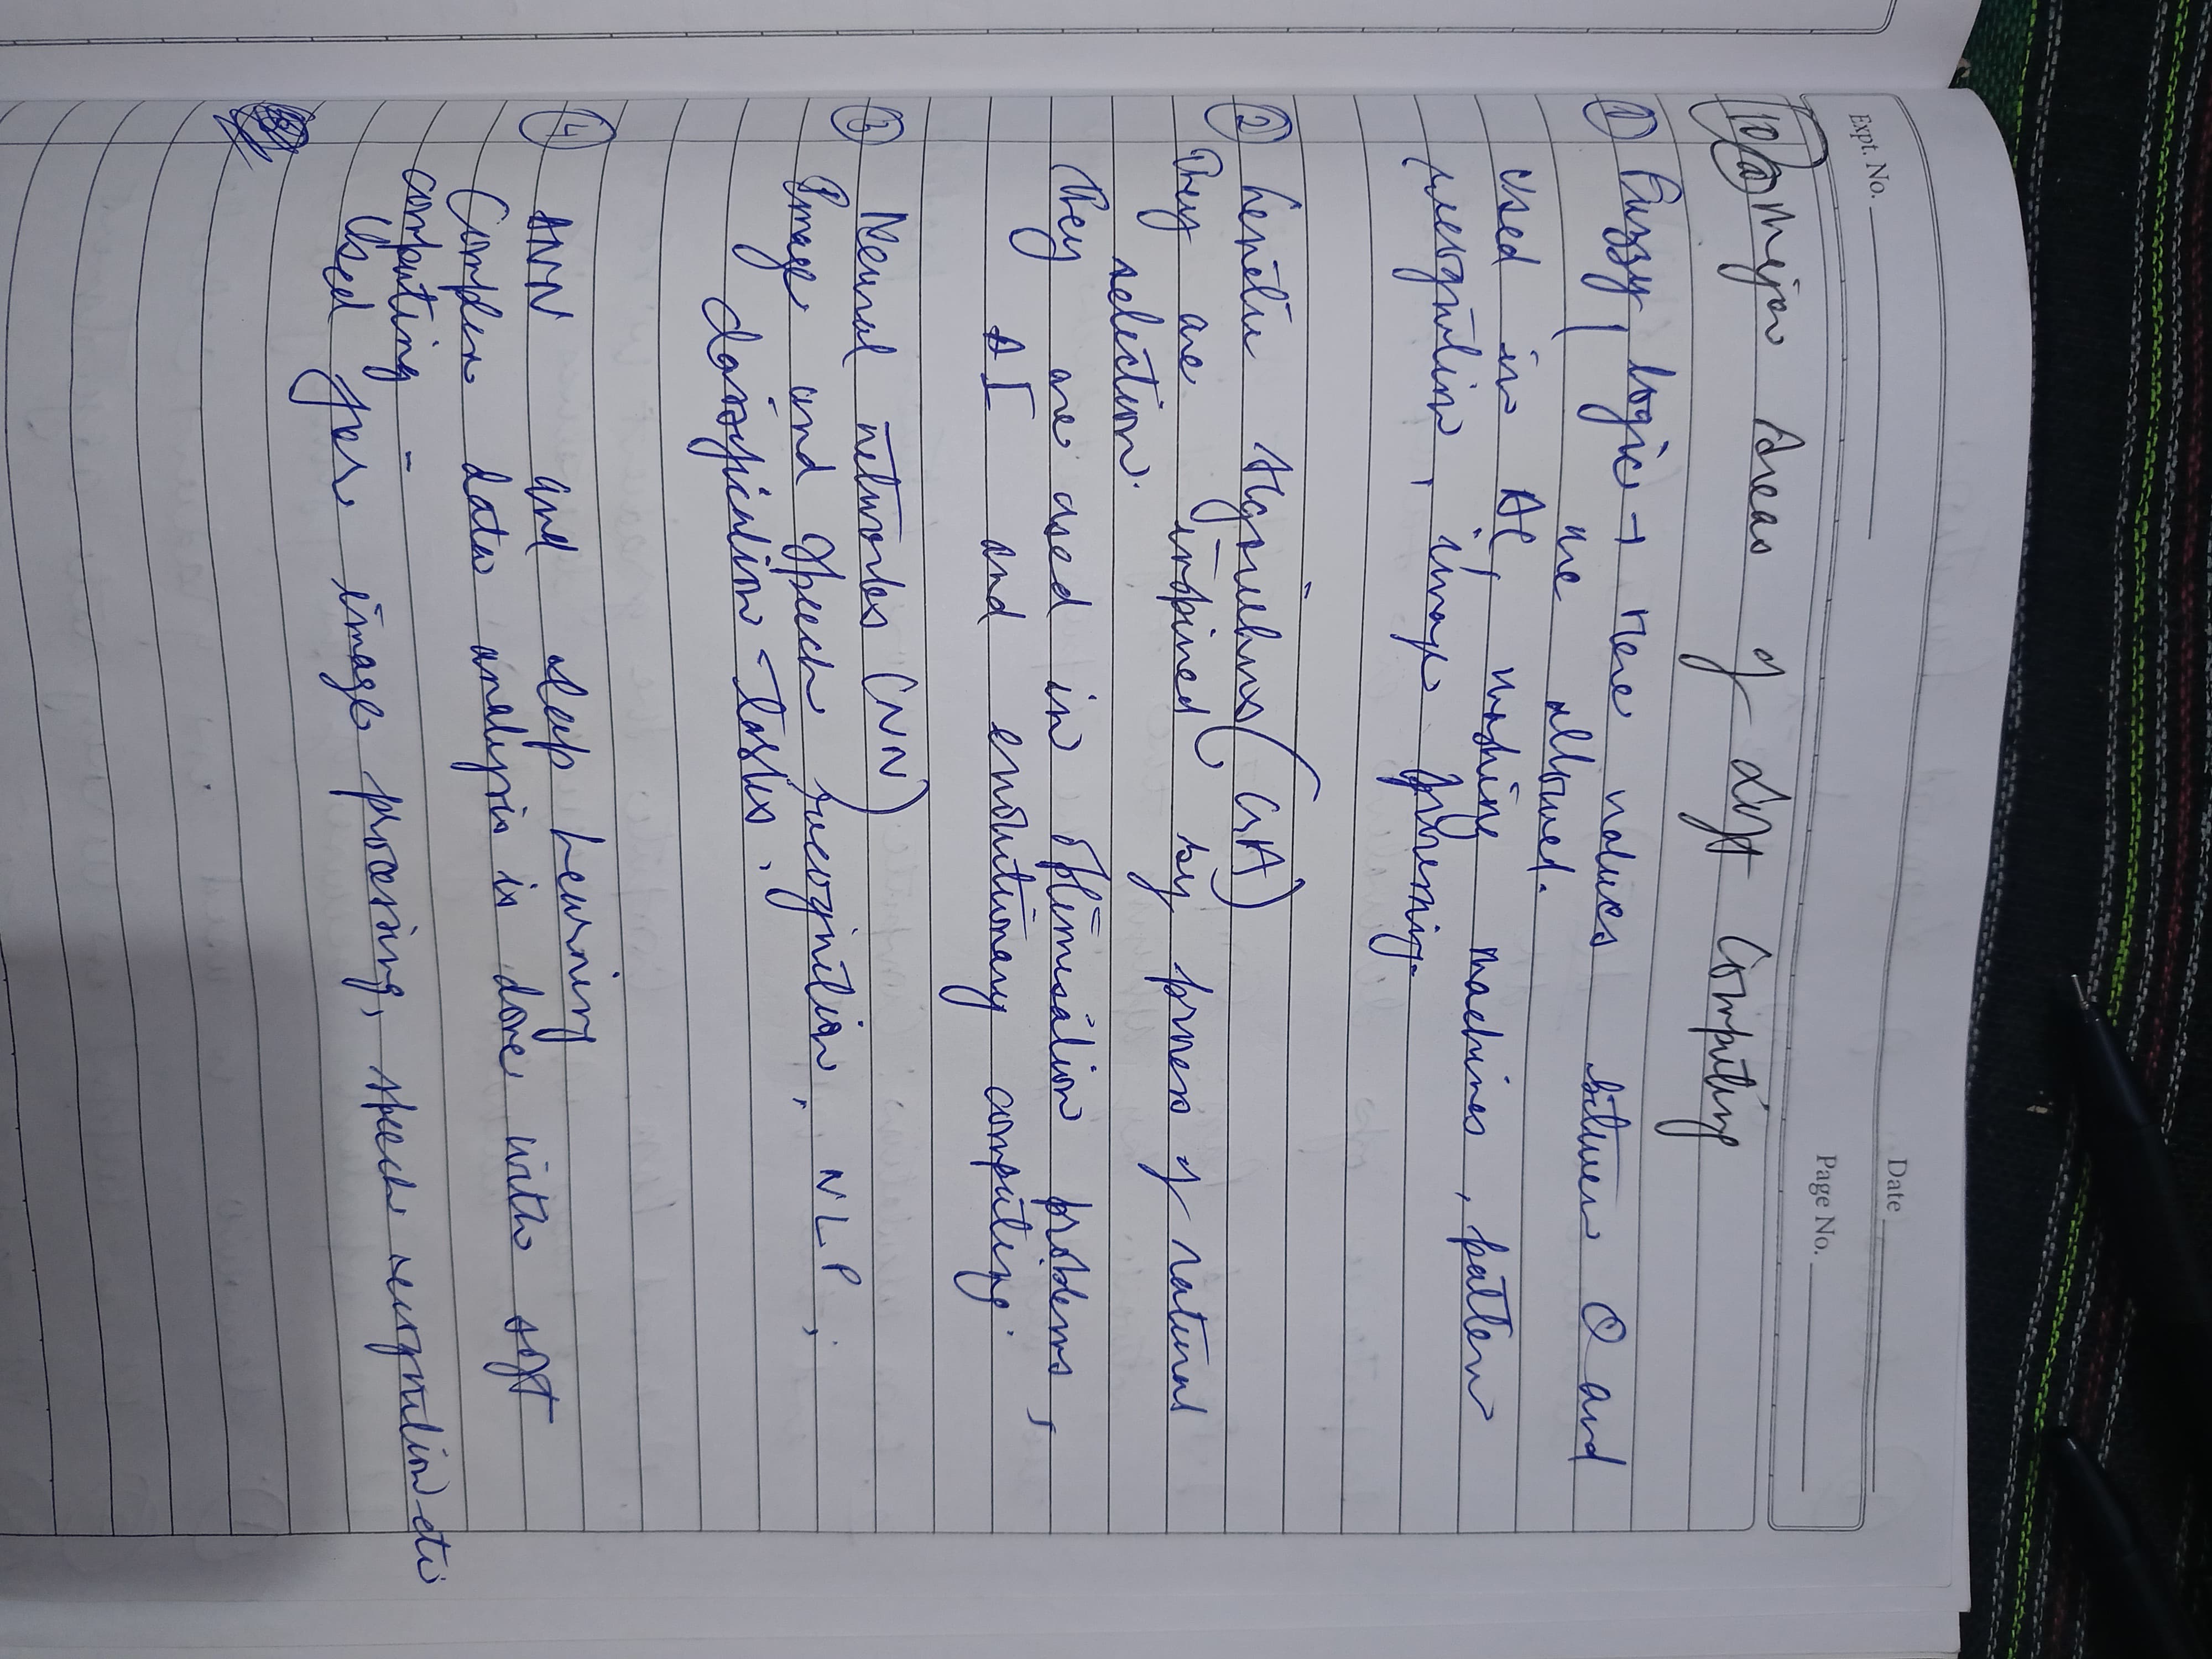 Expt. No.
Date
Page No.
10 a Major Areas of Soft Computing
1 Fuzzy logic → Here values between 0 and
1 are allowed.
Used in AC, washing machines, pattern
recognition, image processing.
2 Genetic Algorithms (GA)
They are inspired by process of natural
selection.
They are used in Optimisation problems,
AI and evolutionary computing.
3 Neural networks (NN)
Image and Speech recognition, NLP,
classification tasks.
4 ANN and deep Learning
Complex data analysis is done with soft
computing -
Used for image processing, speech recognition etc